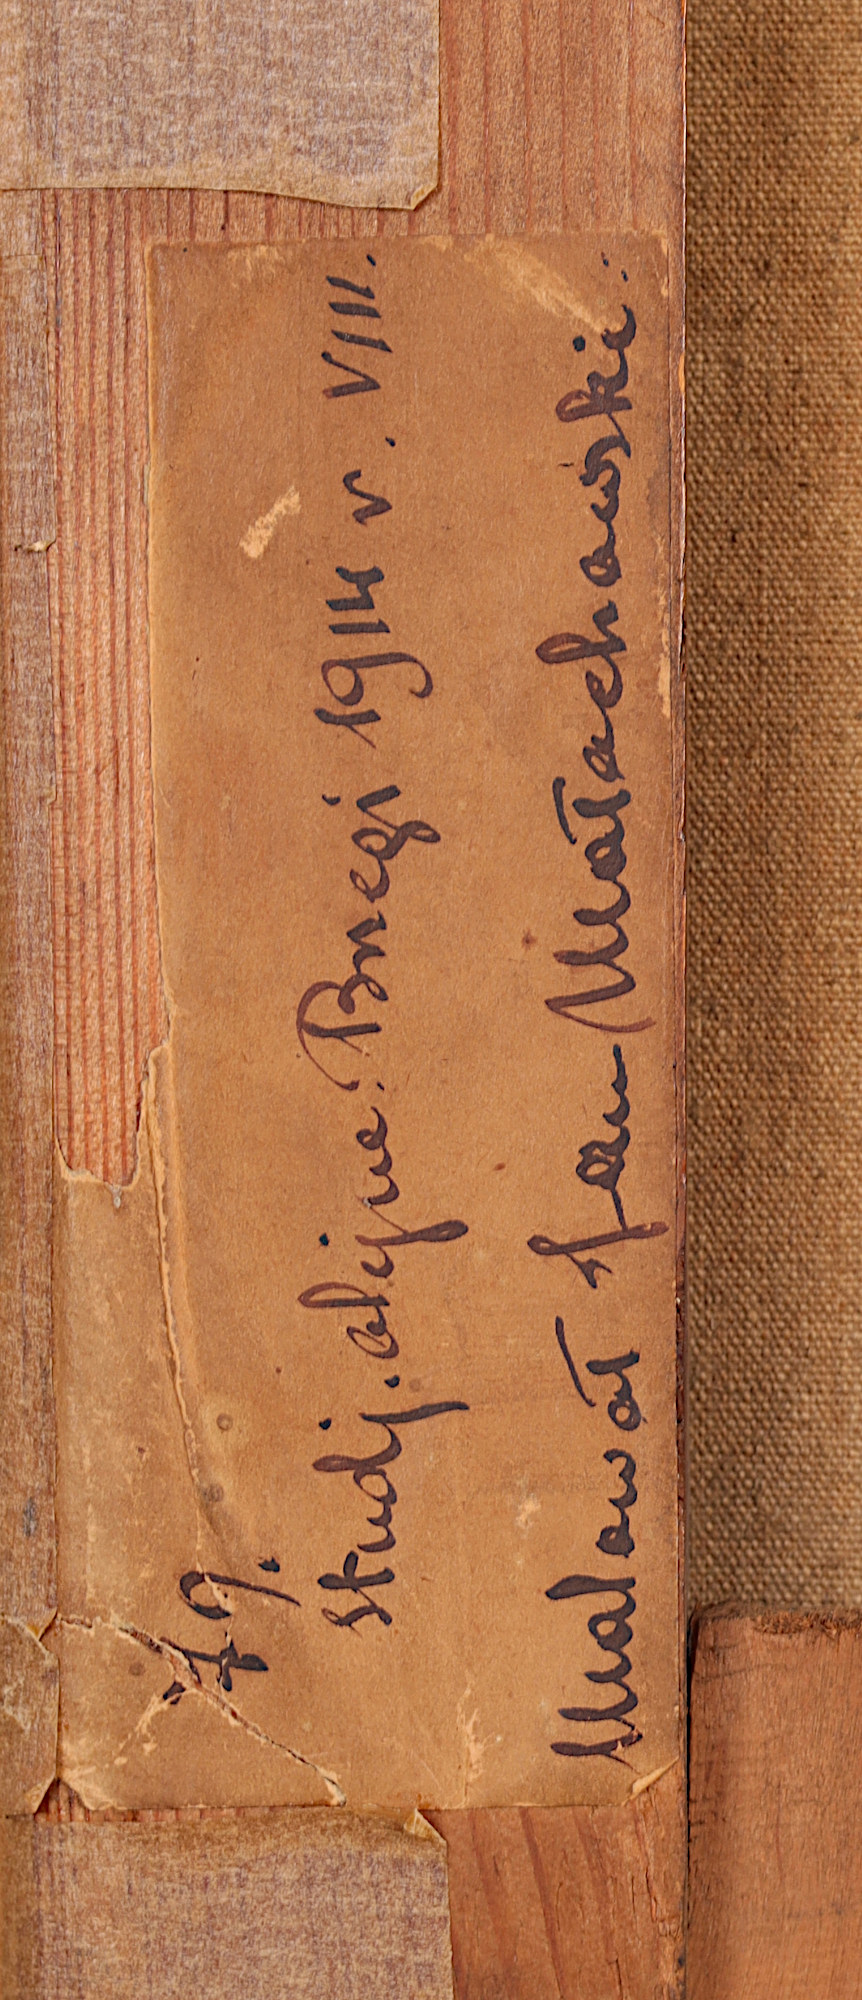 79.
studj. olejne: Bnegi 1914 r. VIII.
Malował Jan Małachowski: